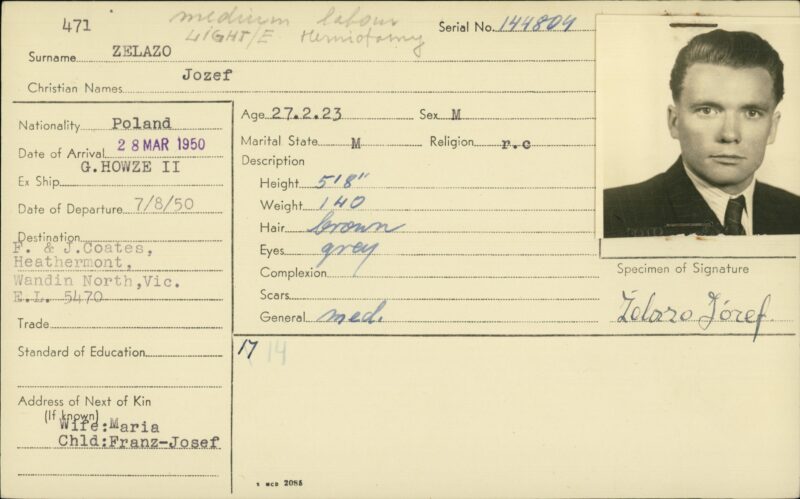 471
medium labour
LIGHT/E Herniotomy
Serial No. 144804
Surname ZELAZO
Christian Names Jozef
Nationality Poland
Date of Arrival 28 MAR 1950
Ex Ship G.HOWZE II
Date of Departure 7/8/50
Destination
F. & J.Coates,
Heathermont,
Wandin North,Vic.
E.L. 5470
Trade
Standard of Education
Address of Next of Kin
(If known)
Wife:Maria
Chld:Franz-Josef
Age 27.2.23 Sex M
Marital State M Religion r.c
Description
Height 5'8"
Weight 140
Hair brown
Eyes grey
Complexion
Scars
General med.
17 14
Specimen of Signature
Żelazo Józef.
2085